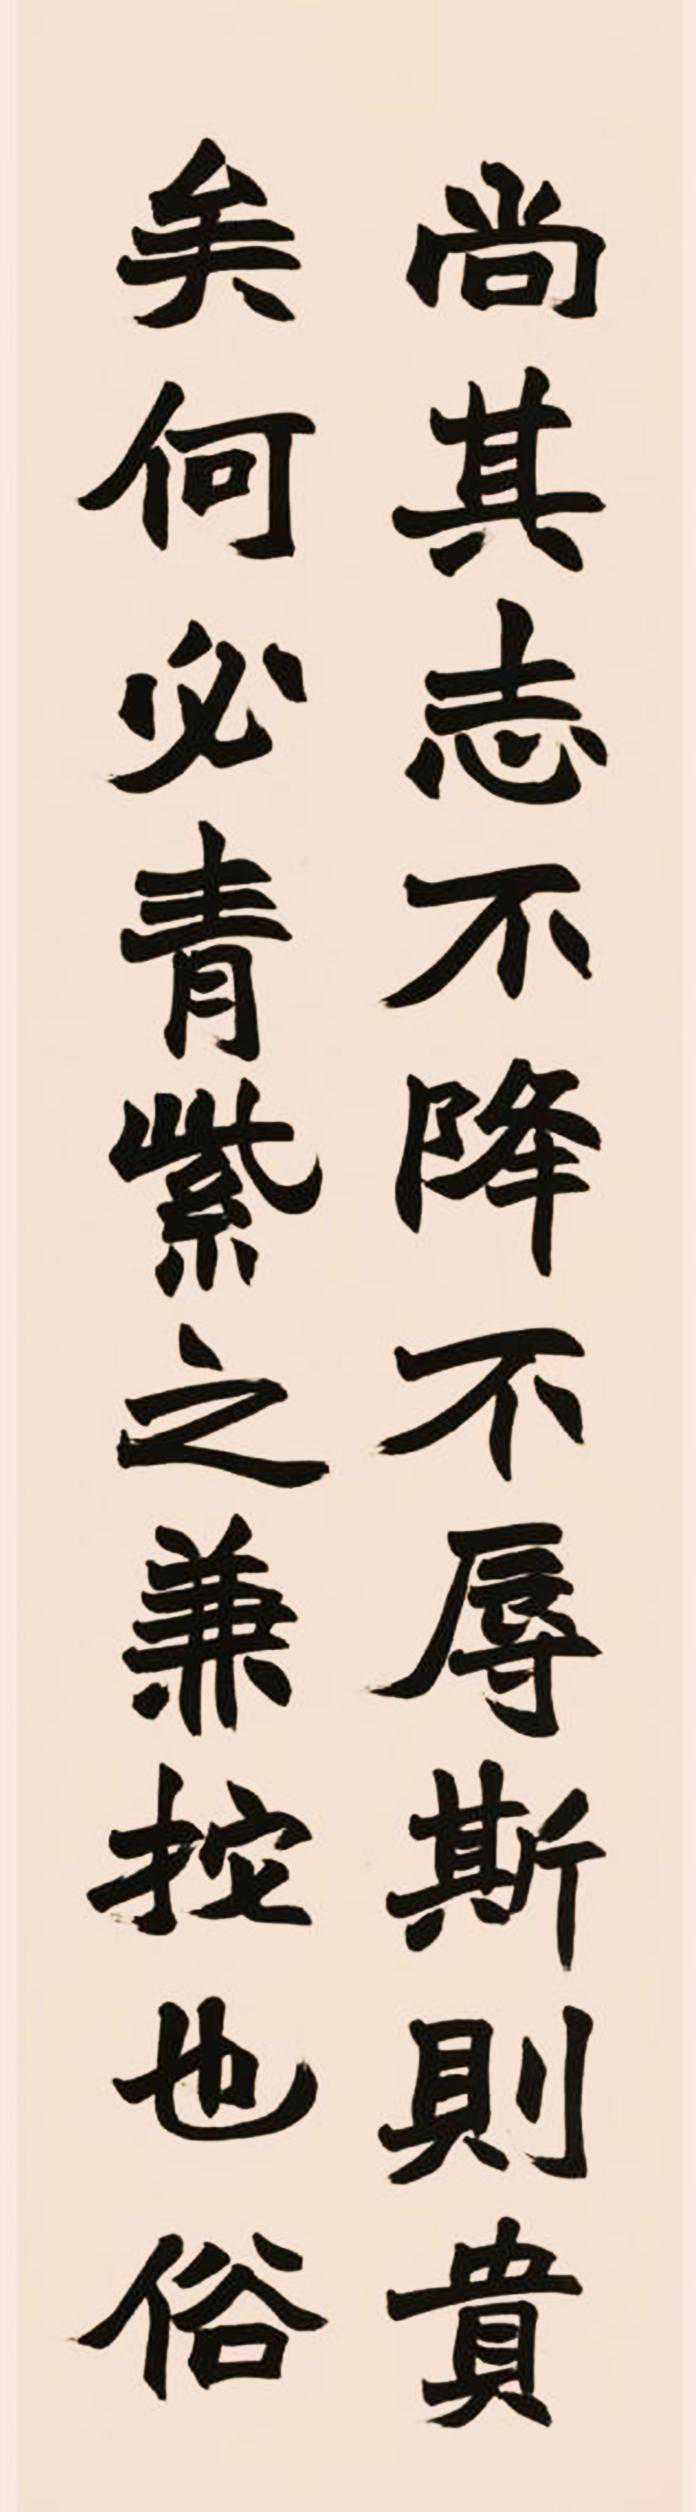 尚其志不降不辱斯則貴
矣何必青紫之兼拕也俗